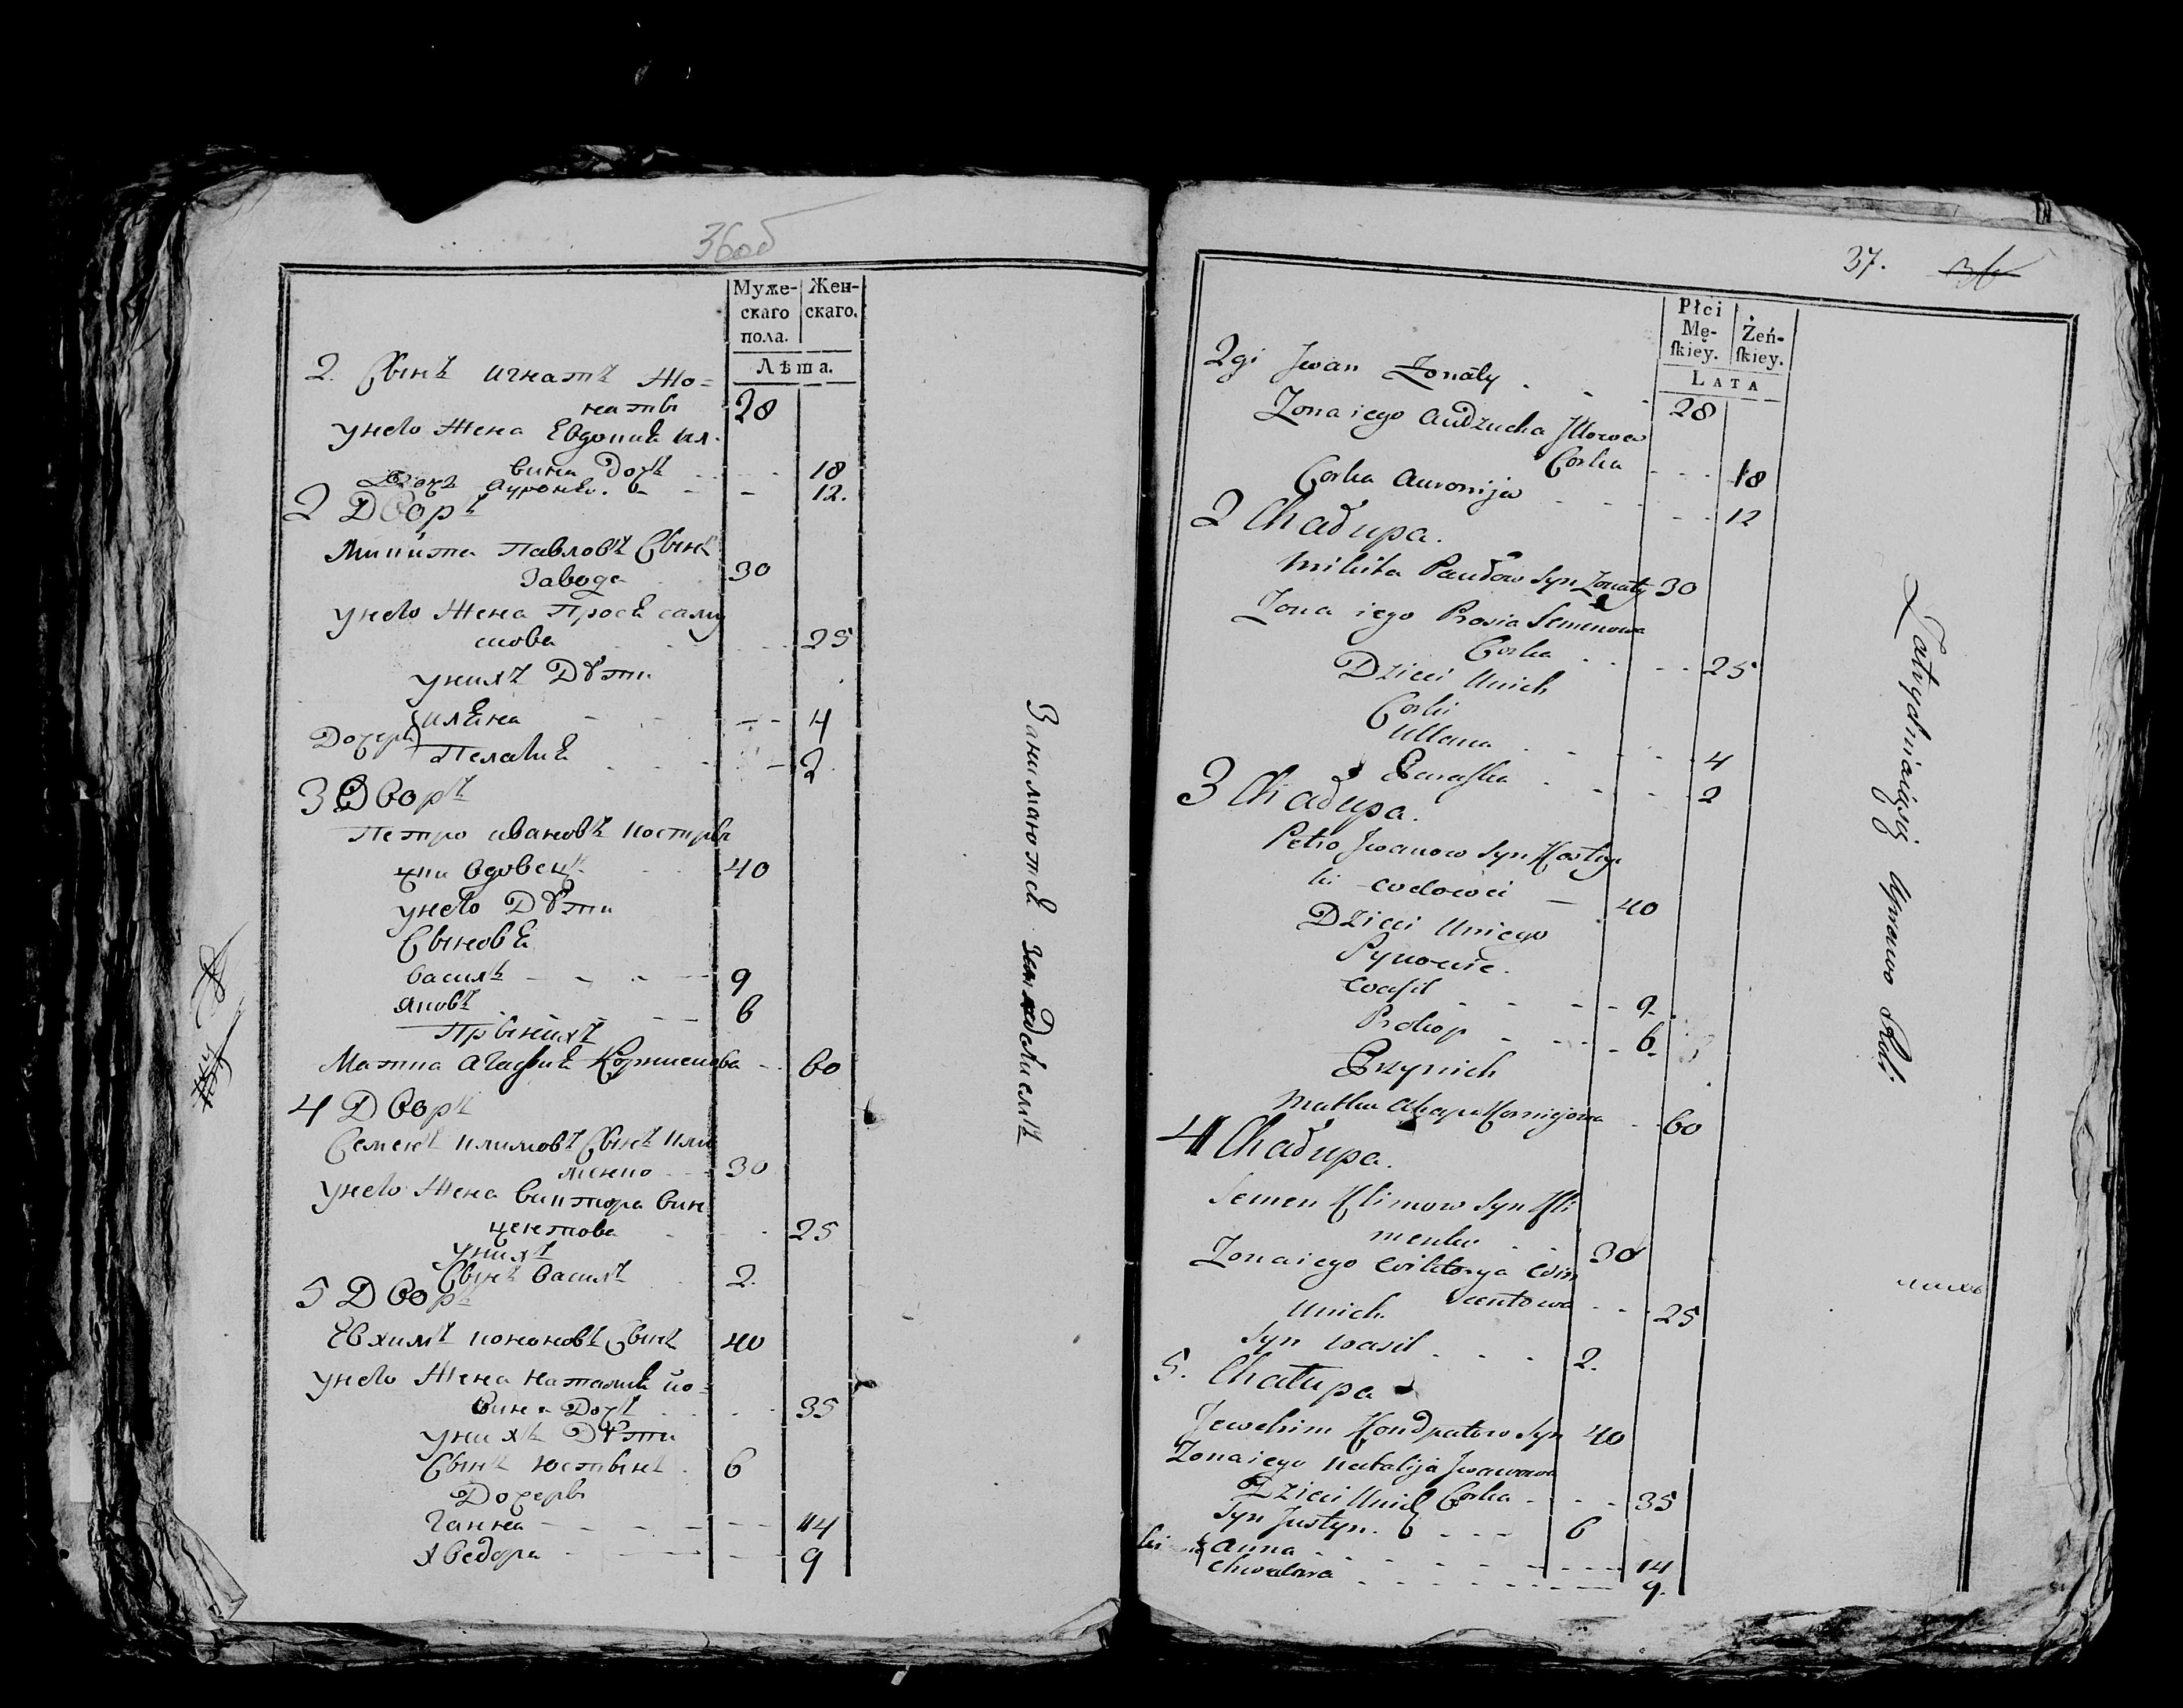 36об
Муже-
скаго
пола.
Жен-
скаго.
Лѣта.
2. Сынъ Игнатъ Жо=
наты 28
унего Жена Евдокия Ил.
вина Дочь 18
Дочь 12.
2 Дворъ
Микита Павловъ Сынъ
30
унего Жена Прося
25
унихъ Дѣти
Дочери
Иляна 4
Пелагия 2
3 Дворъ
Петро Ивановъ Костры
цки Вдовецъ 40
унего Дѣти
Сыновя
Василь 9
6
Прынихъ
Матка Агафия 60
4 Дворъ
Семенъ Климовъ Сынъ Кли
менко 30
унего Жена Виктора Вин
центова 25
унихъ
Сынъ Василь 2.
5 Дворъ
Евхимъ Кононовъ Сынъ 40
унего Жена Наталия
вина Дочь 35
унихъ Дѣти
Сынъ Юстынъ 6
Дочеры
Ганна 14
Хведора 9
Занимаются
37. 36
Płci
Mę-
ſkiey.
Żeń-
ſkiey.
LATA
2gi Jwan Zonaty 28
Zona iego Audzucha
Corka 18
Corka Auronija 12
2 Chałupa.
Mikita Paułow Syn Zonaty 30
Zona iego Prosia Semenowa
Corka 25
Dzieci Unich
Corki
Ullana 4
Paraska 2
3 Chałupa.
Petro Jwanow Syn Kostry
ki wdowei 40
Dzieci Uniego
Synowie.
Wasil 9.
Prokop 6.
Przynich
Matka Ahapa Korniejowa 60
4 Chałupa.
Semen Klimow Syn Kli
menko 30
Zona iego Wiktorya Win
centowa 25
Unich
Syn Wasil 2.
5. Chałupa
Jewchim Kondratow Syn 40
Zona iego Natalija Jwanowa
Corka 35
Dzieci Unich
Syn Justyn. 6
Anna 14
Chwedora 9.
Zatrudniaiąsię Uprawo Roli